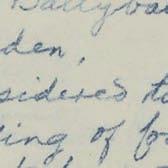 Ballybo
den,
sidered t
ing of f